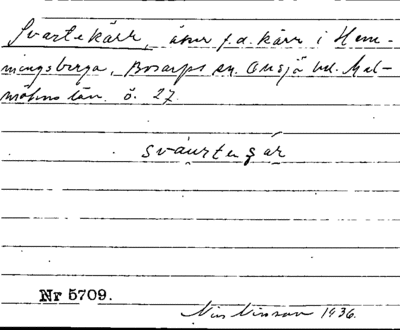 Svartekärr, åker f.d. kärr i Hem-
mingsberga, Bosarps sn. Onsjö hd. Mal-
möhus län. ö. 27
sváurtenşár
Nr 5709.
Nils Nilsson 1936.